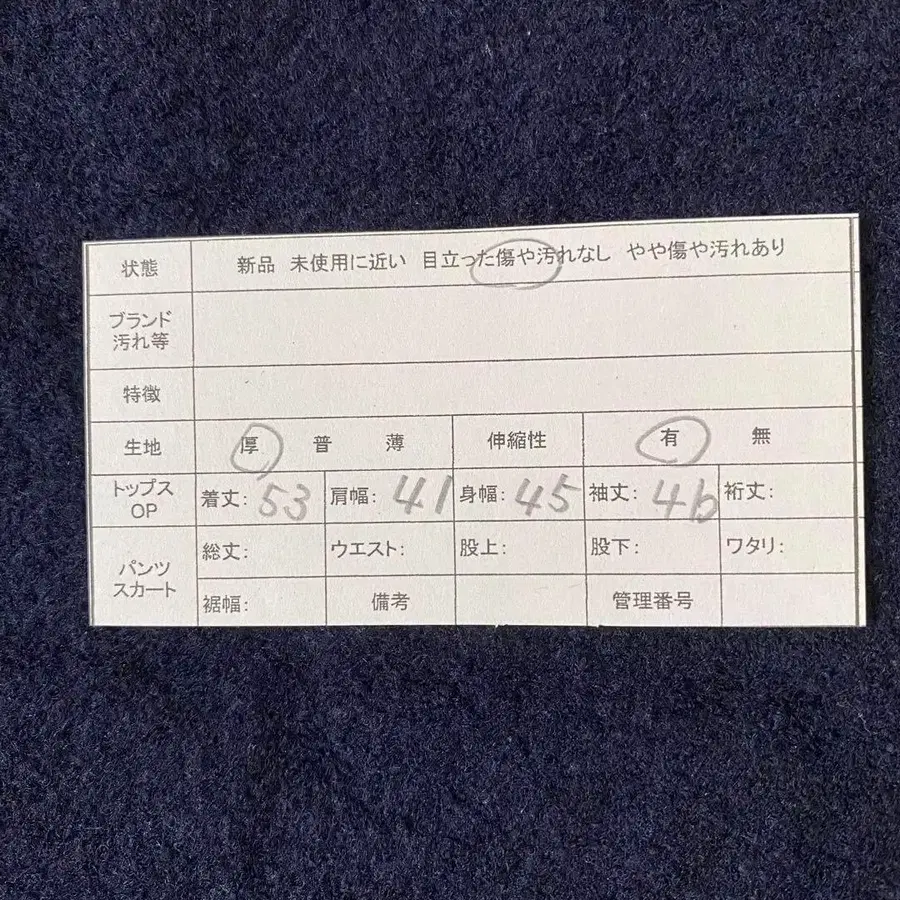 状態 新品 未使用に近い 目立った傷や汚れなし やや傷や汚れあり
ブランド
汚れ等
特徴
生地 厚 普 薄 伸縮性 有 無
トップス
OP
着丈: 53 肩幅: 41 身幅: 45 袖丈: 46 裄丈:
パンツ
スカート
総丈: ウエスト: 股上: 股下: ワタリ:
裾幅: 備考 管理番号